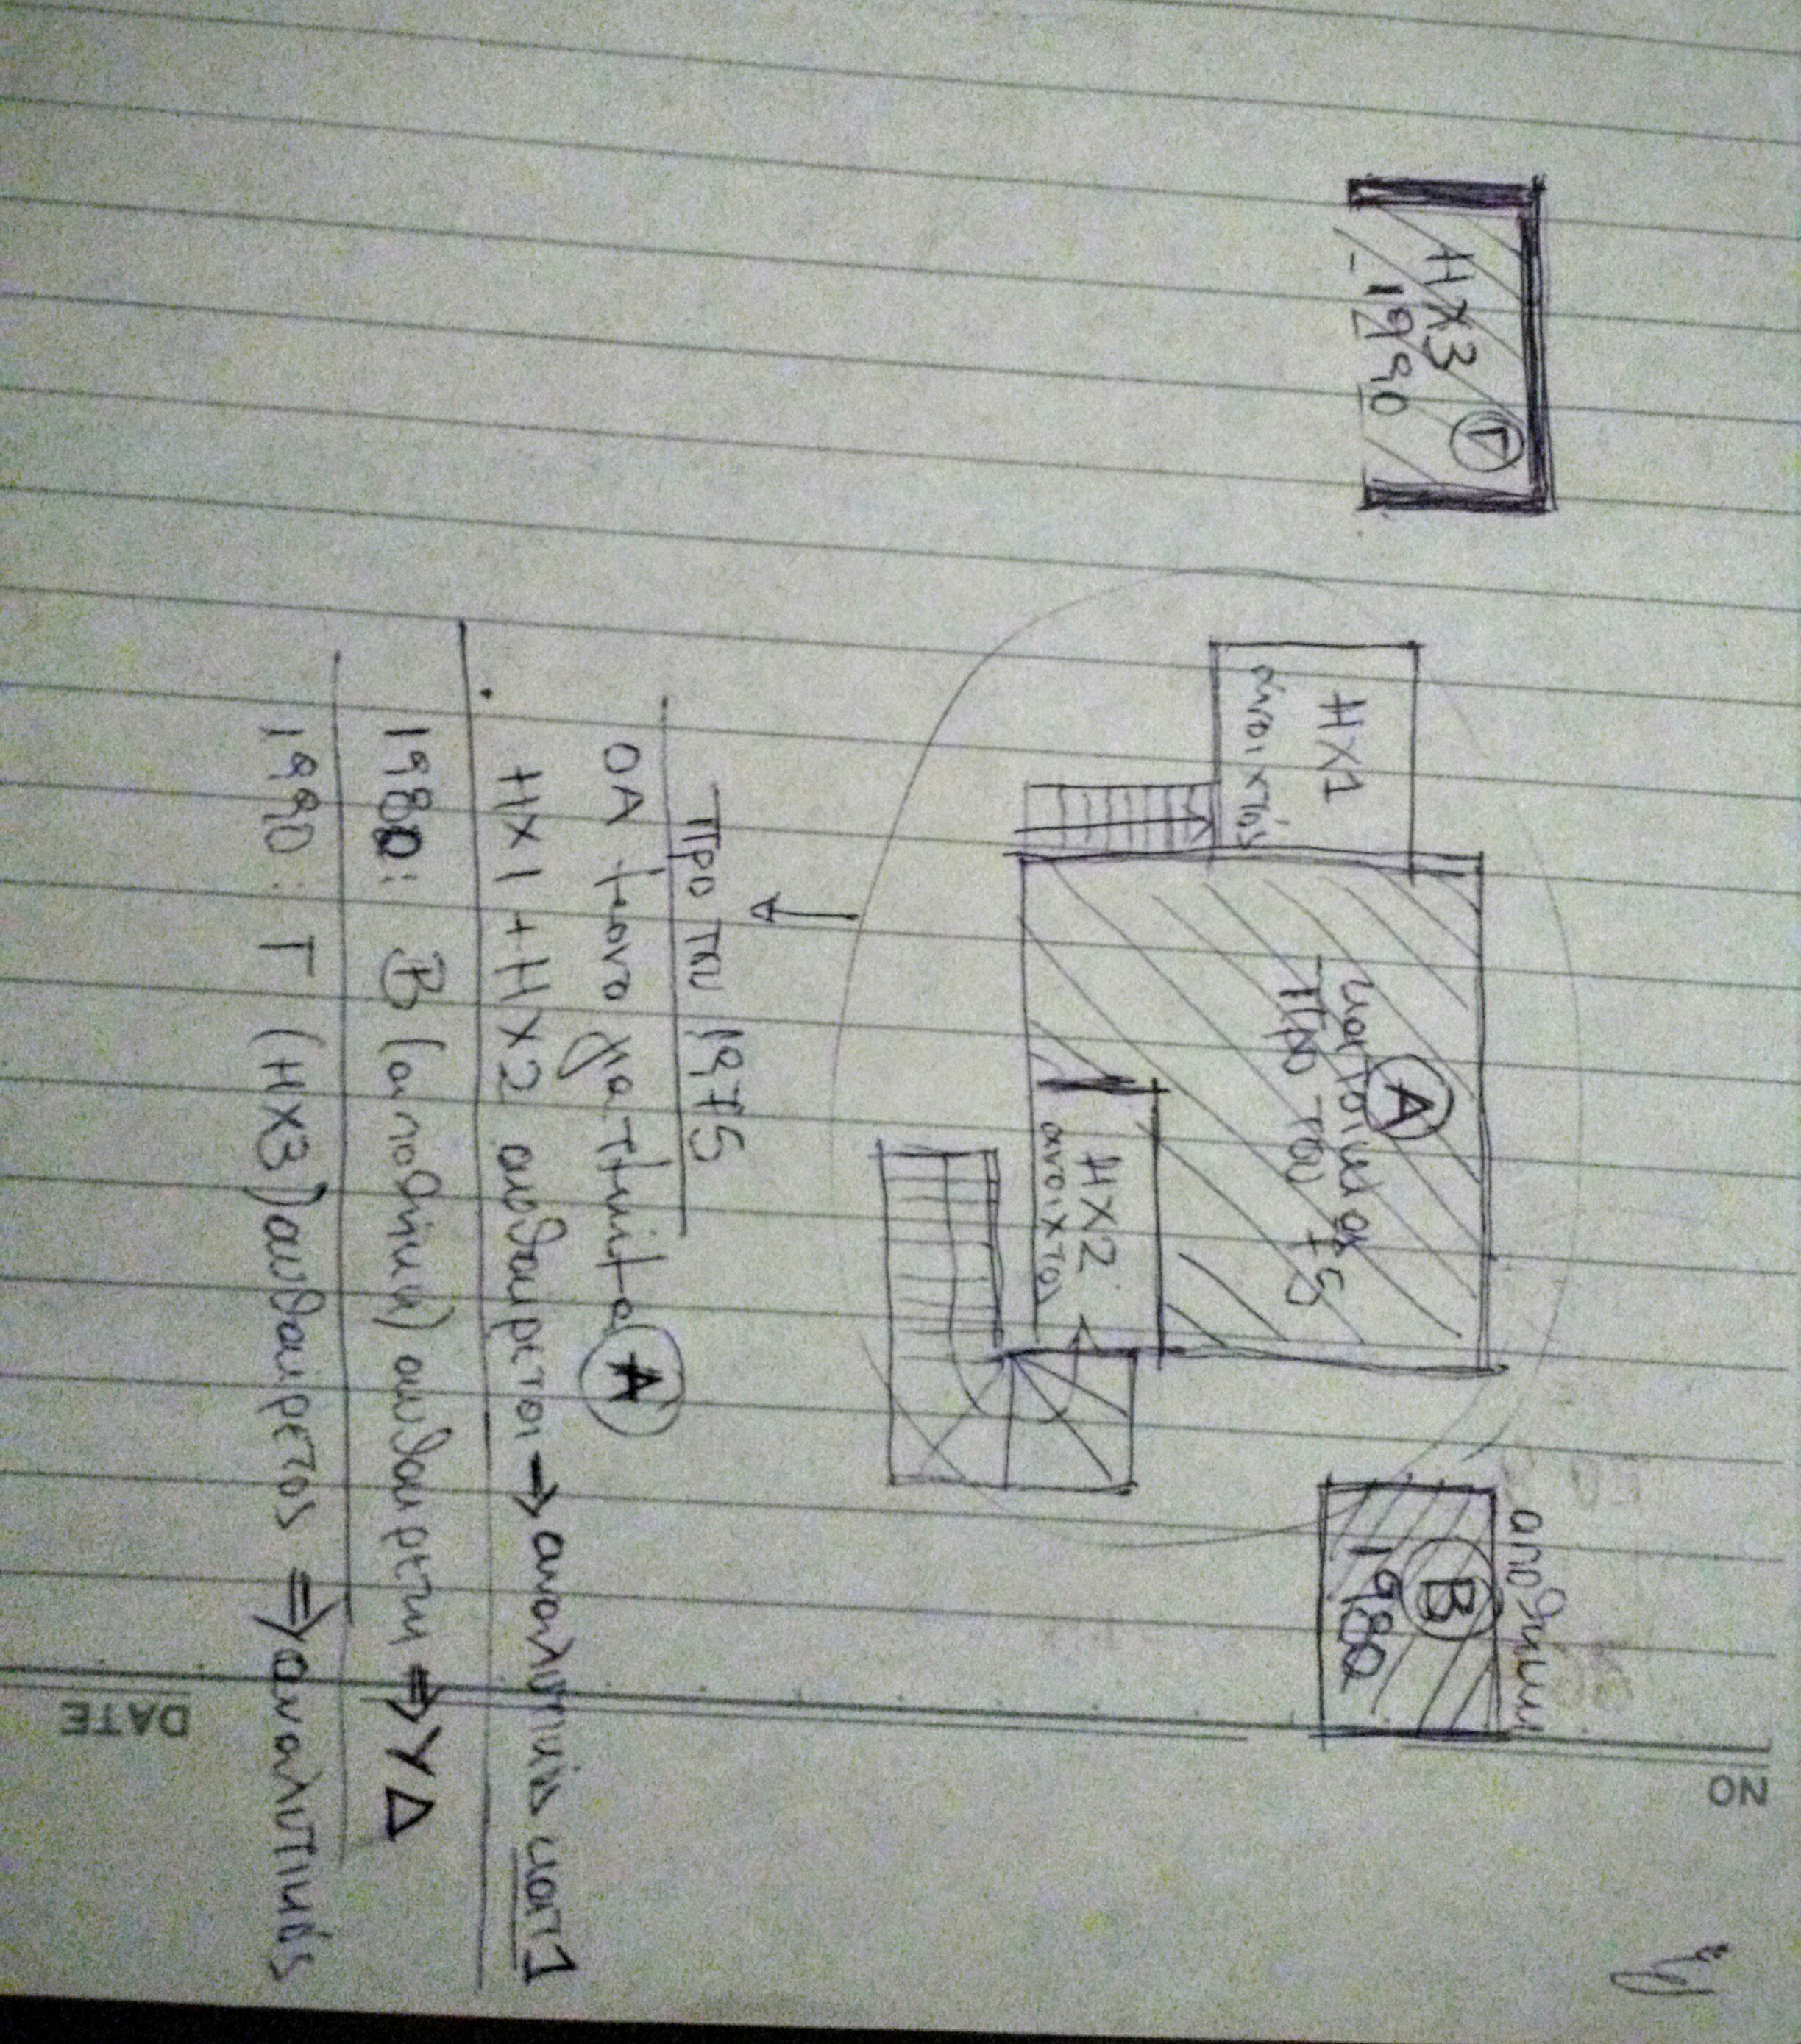 ΗΧ3
Γ
1990
ΗΧ1
ανοιχτός
Α
κατοικία
Προ του 75
ΗΧ2
ανοιχτος
αποθηκη
Β
1980
Προ του 1975
ΟΑ μονο για τμημα Α
ΗΧ1 + ΗΧ2 αυθαιρετοι → αναλυτικός κατ1
1980: Β (αποθηκη) αυθαιρετη ⇒ ΥΔ
1990: Γ (ΗΧ3) αυθαιρετος ⇒ αναλυτικός
NO
DATE